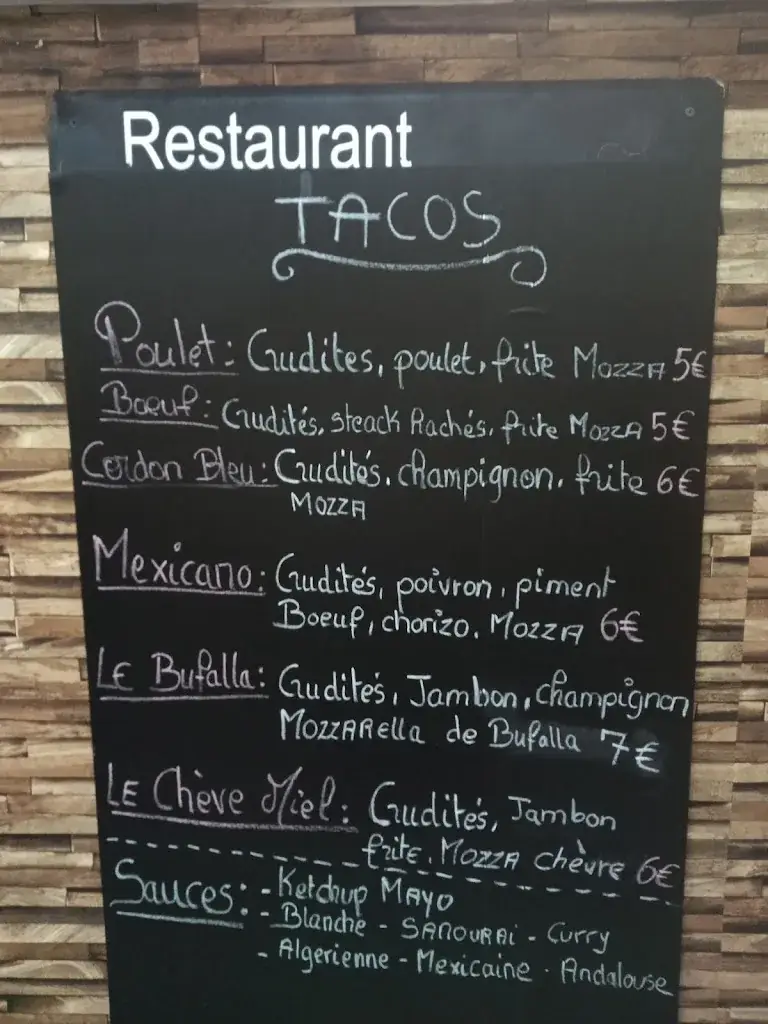 Restaurant
TACOS
Poulet: Crudites, poulet, frite Mozza 5€
Boeuf: Crudités, steack Rachés, frite Mozza 5€
Cordon Bleu: Crudités, champignon, frite 6€
Mozza
Mexicano: Crudités, poivron, piment
Boeuf, chorizo, Mozza 6€
Le Bufalla: Crudités, Jambon, champignon
Mozzarella de Bufalla 7€
Le Chève Miel: Crudités, Jambon
frite, Mozza chèvre 6€
Sauces: - Ketchup Mayo
- Blanche - Sanourai - Curry
- Algerienne - Mexicaine - Andalouse